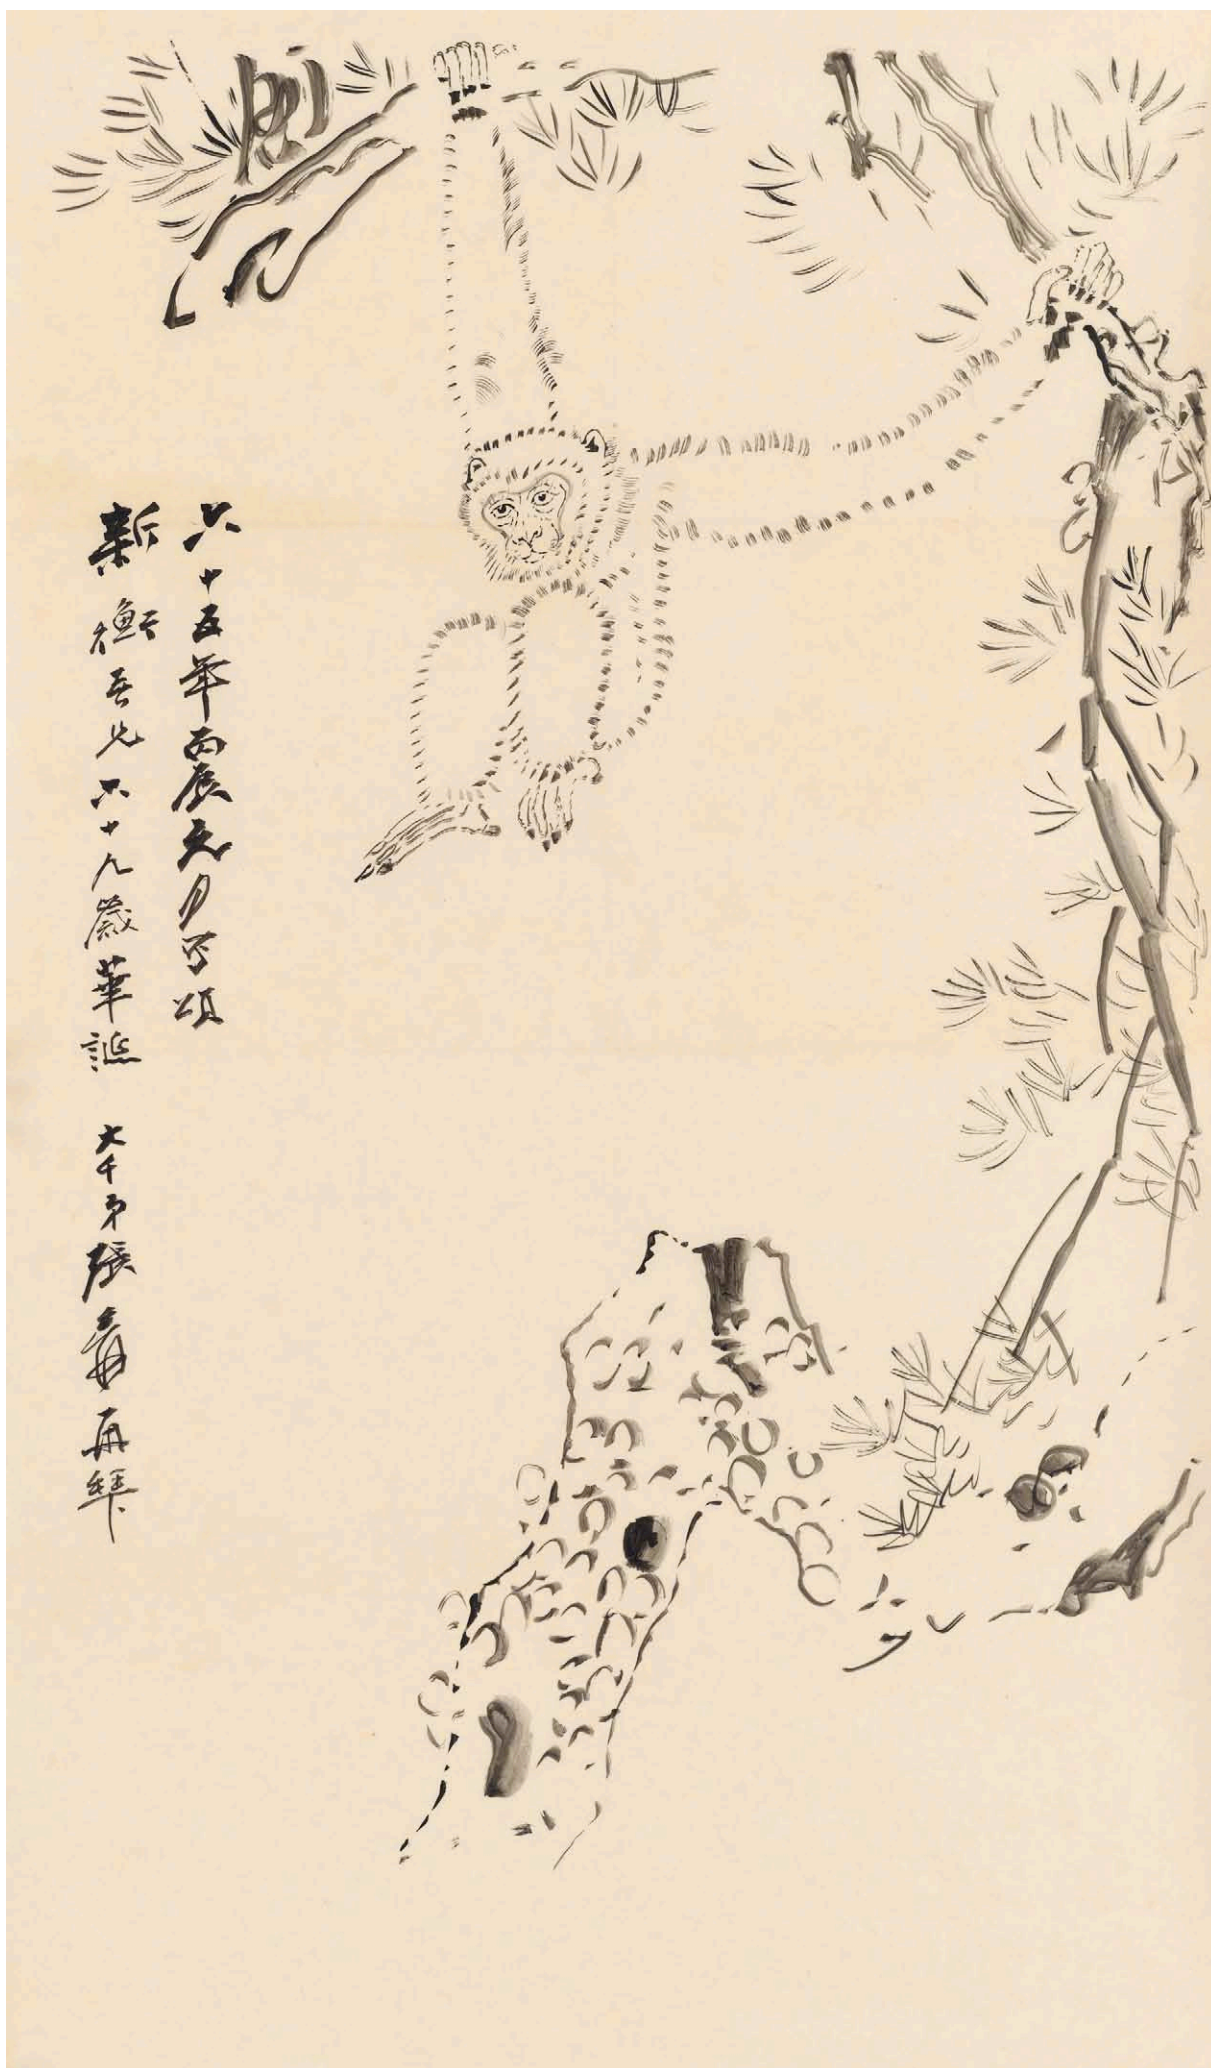 六十五年丙辰元月寫頌
新衡吾兄六十九歲華誕 大千弟張爰再拜